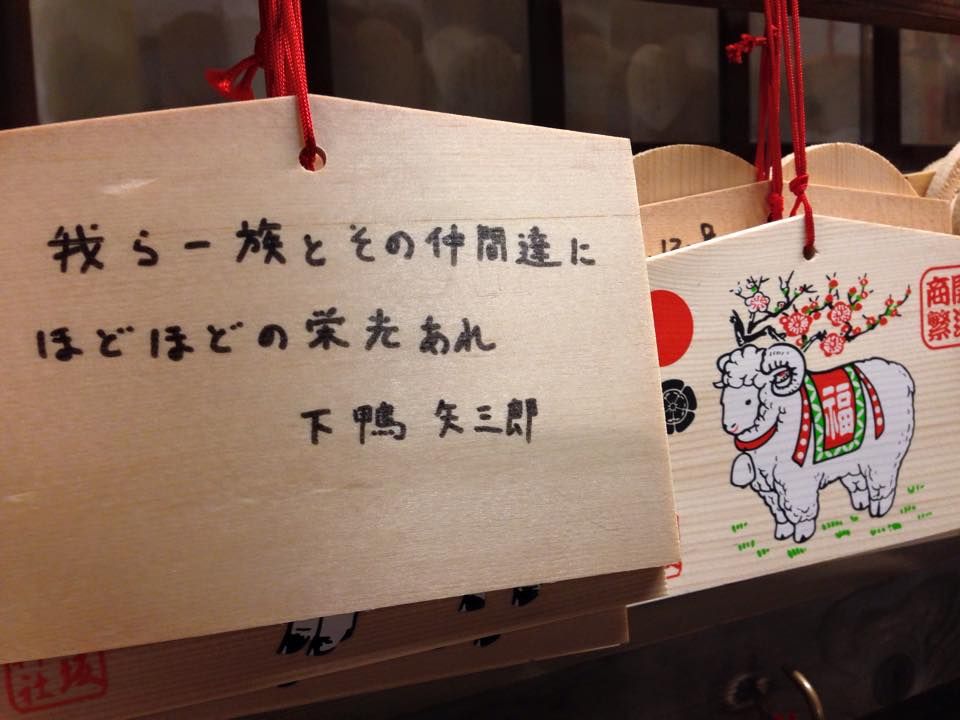 我ら一族とその仲間達に
ほどほどの栄光あれ
下鴨 矢三郎
12.8
福
商
繁
社